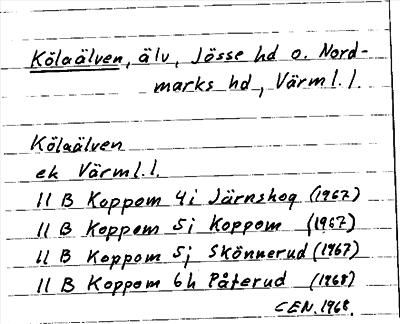 Kölaälven, älv, Jösse hd o. Nord-
marks hd, Värml. l.
Kölaälven
ek Värml. l.
11 B Koppom 4i Järnskog (1967)
11 B Koppom 5i Koppom (1967)
11 B Koppom 5j Skönnerud (1967)
11 B Koppom 6h Påterud (1968)
CEN. 1968.